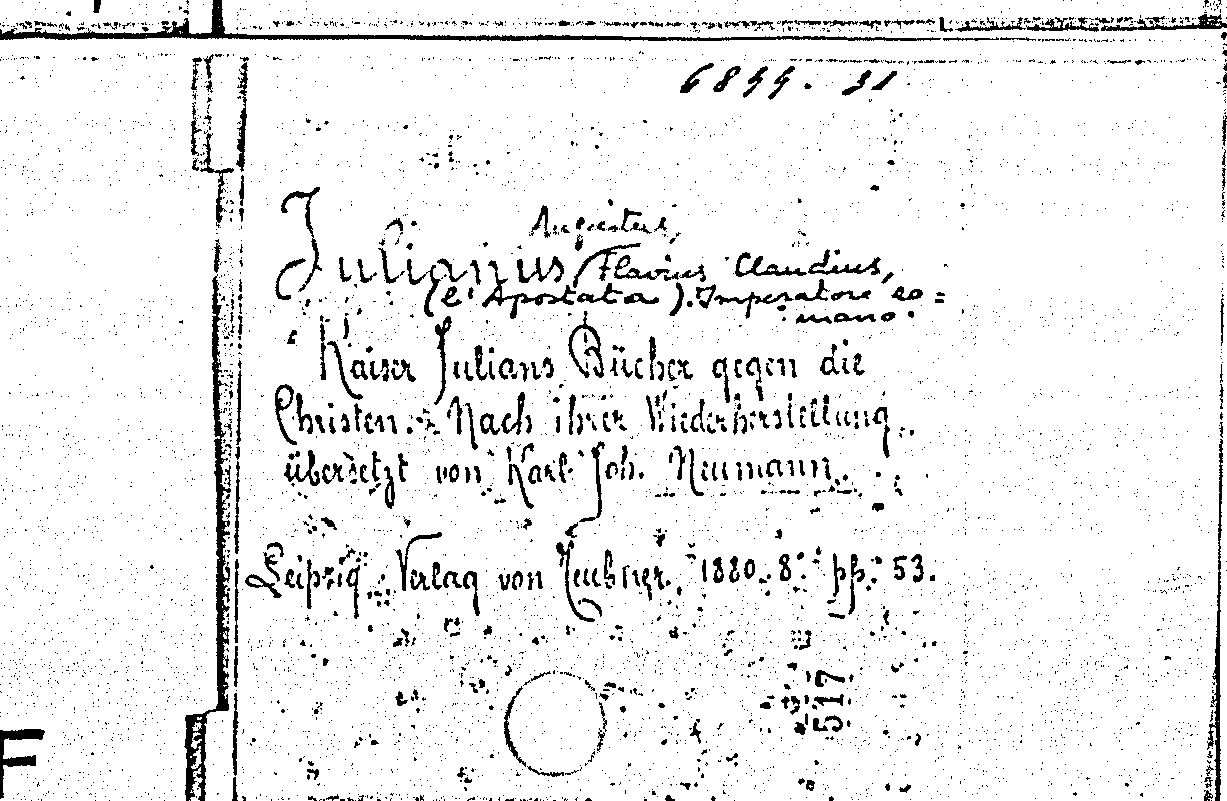 6844. 31
Augustus,
Julianus, Flavius Claudius,
(l'Apostata). Imperatore ro=
mano.
Kaiser Julians Bücher gegen die
Christen. Nach ihrer Wiederherstellung
übersetzt von Karl Joh. Neumann.
Leipzig. Verlag von Teubner. 1880. 8.° pp. 53.
517
F